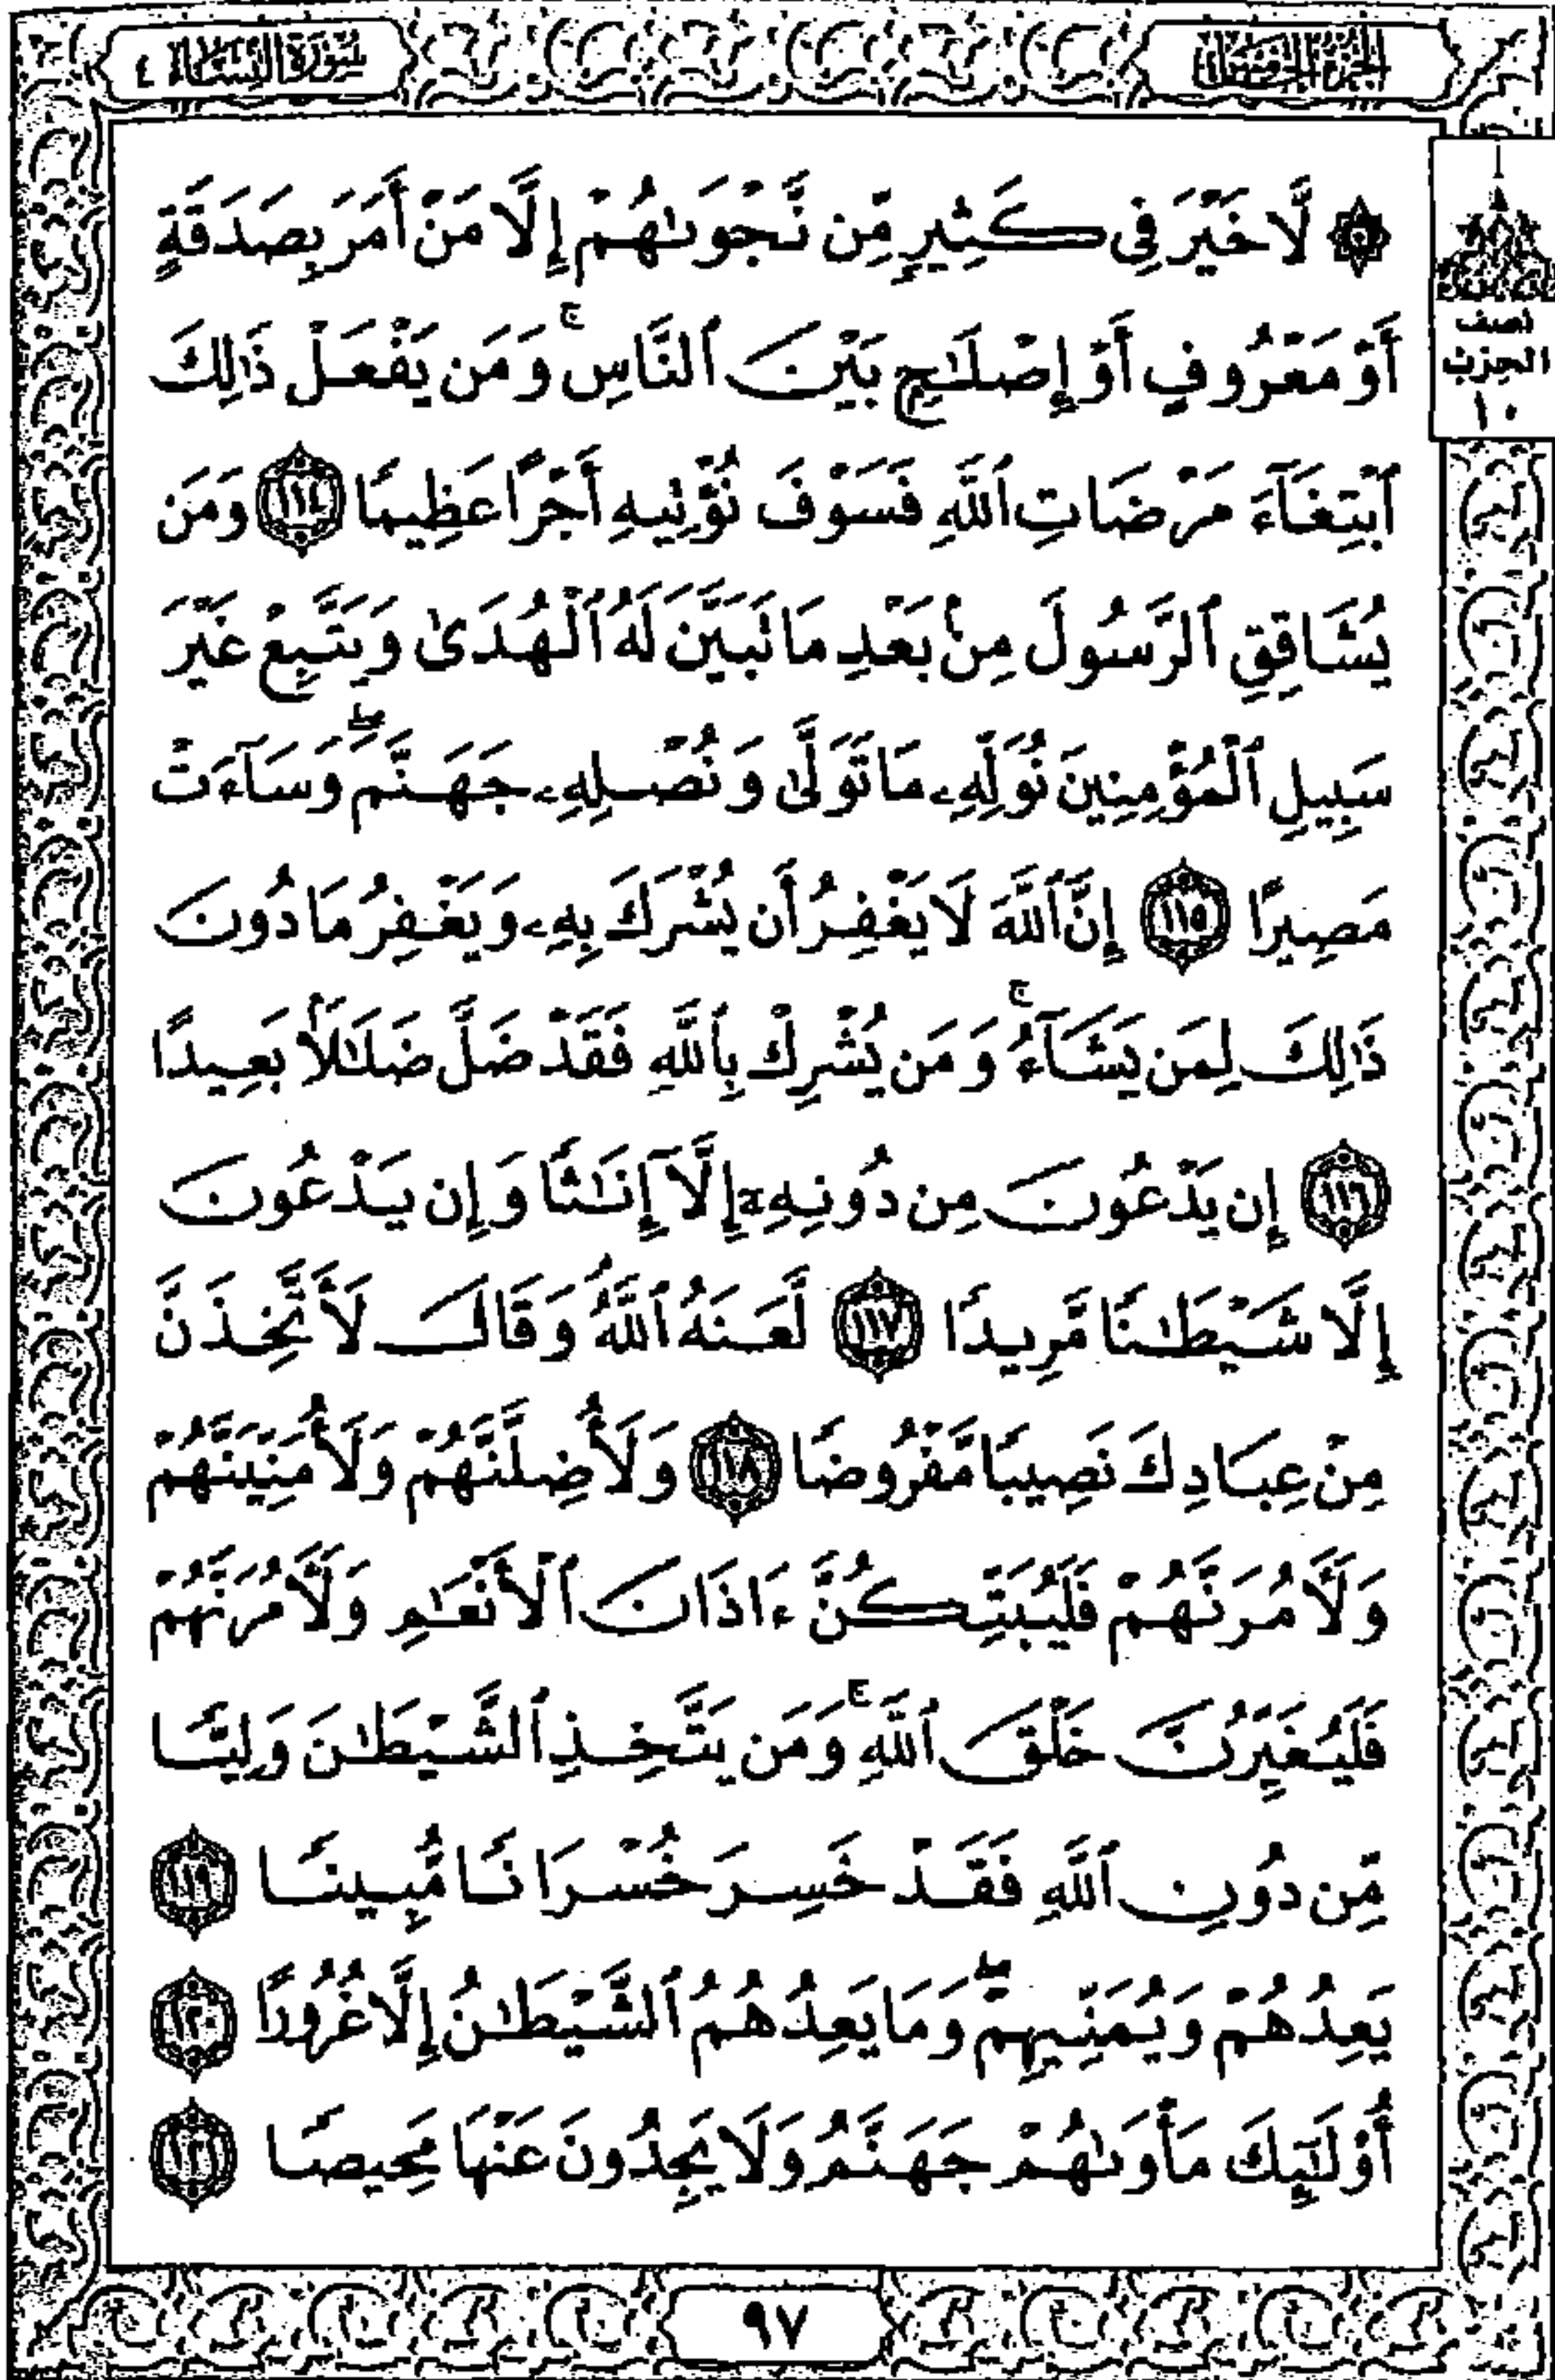 الجزء الخامس
سورة النساء ٤
نصف
الحزب
١٠
۞ لَّا خَيْرَ فِى كَثِيرٍ مِّن نَّجْوَىٰهُمْ إِلَّا مَنْ أَمَرَ بِصَدَقَةٍ
أَوْ مَعْرُوفٍ أَوْ إِصْلَٰحٍۭ بَيْنَ ٱلنَّاسِ ۚ وَمَن يَفْعَلْ ذَٰلِكَ
ٱبْتِغَآءَ مَرْضَاتِ ٱللَّهِ فَسَوْفَ نُؤْتِيهِ أَجْرًا عَظِيمًا ١١٤ وَمَن
يُشَاقِقِ ٱلرَّسُولَ مِنۢ بَعْدِ مَا تَبَيَّنَ لَهُ ٱلْهُدَىٰ وَيَتَّبِعْ غَيْرَ
سَبِيلِ ٱلْمُؤْمِنِينَ نُوَلِّهِۦ مَا تَوَلَّىٰ وَنُصْلِهِۦ جَهَنَّمَ ۖ وَسَآءَتْ
مَصِيرًا ١١٥ إِنَّ ٱللَّهَ لَا يَغْفِرُ أَن يُشْرَكَ بِهِۦ وَيَغْفِرُ مَا دُونَ
ذَٰلِكَ لِمَن يَشَآءُ ۚ وَمَن يُشْرِكْ بِٱللَّهِ فَقَدْ ضَلَّ ضَلَٰلًۢا بَعِيدًا
١١٦ إِن يَدْعُونَ مِن دُونِهِۦٓ إِلَّآ إِنَٰثًا وَإِن يَدْعُونَ
إِلَّا شَيْطَٰنًا مَّرِيدًا ١١٧ لَّعَنَهُ ٱللَّهُ ۘ وَقَالَ لَأَتَّخِذَنَّ
مِنْ عِبَادِكَ نَصِيبًا مَّفْرُوضًا ١١٨ وَلَأُضِلَّنَّهُمْ وَلَأُمَنِّيَنَّهُمْ
وَلَءَامُرَنَّهُمْ فَلَيُبَتِّكُنَّ ءَاذَانَ ٱلْأَنْعَٰمِ وَلَءَامُرَنَّهُمْ
فَلَيُغَيِّرُنَّ خَلْقَ ٱللَّهِ ۚ وَمَن يَتَّخِذِ ٱلشَّيْطَٰنَ وَلِيًّا
مِّن دُونِ ٱللَّهِ فَقَدْ خَسِرَ خُسْرَانًا مُّبِينًا ١١٩
يَعِدُهُمْ وَيُمَنِّيهِمْ ۖ وَمَا يَعِدُهُمُ ٱلشَّيْطَٰنُ إِلَّا غُرُورًا ١٢٠
أُو۟لَٰٓئِكَ مَأْوَىٰهُمْ جَهَنَّمُ وَلَا يَجِدُونَ عَنْهَا مَحِيصًا ١٢١
٩٧